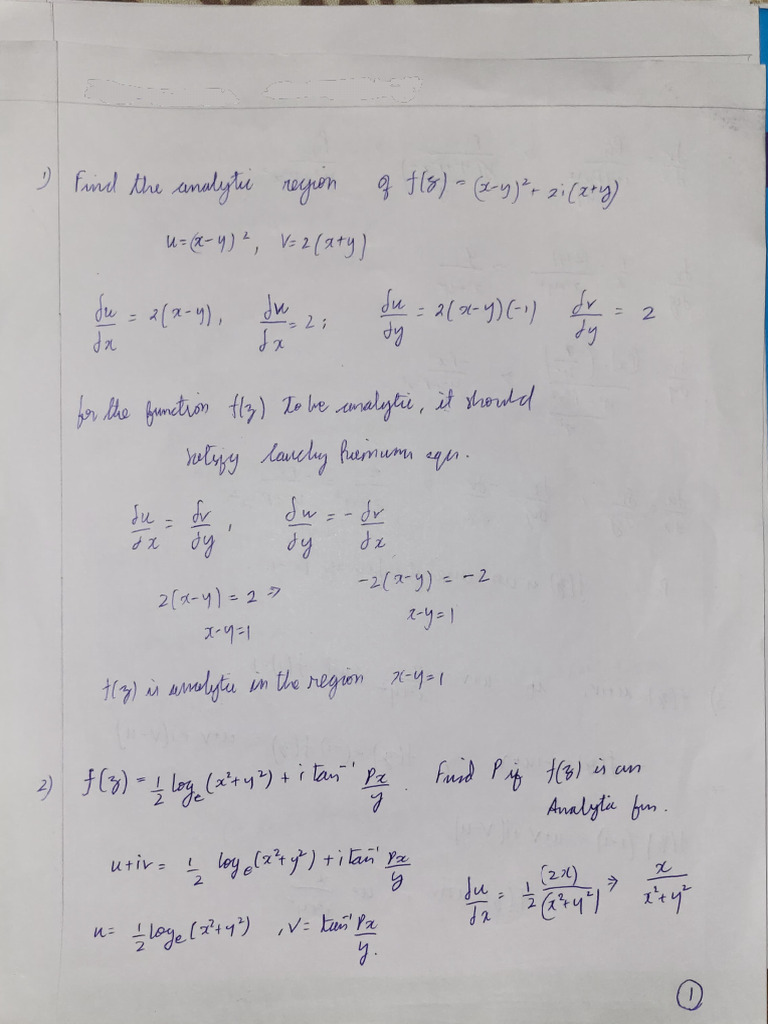 1) Find the analytic region of f(z) = (x-y)² + 2i(x+y)
u=(x-y)², V=2(x+y)
du/dx = 2(x-y), dv/dx = 2; du/dy = 2(x-y)(-1) dv/dy = 2
for the function f(z) to be analytic, it should
satisfy Cauchy Riemann eqn.
du/dx = dv/dy, du/dy = - dv/dx
2(x-y) = 2 ⇒ -2(x-y) = -2
x-y=1 x-y=1
f(z) is analytic in the region x-y=1
2) f(z) = 1/2 logₑ(x²+y²) + i tan⁻¹ Px/y. Find P if f(z) is an
Analytic fun.
u+iv = 1/2 logₑ(x²+y²) + i tan⁻¹ Px/y
du/dx = 1/2 (2x)/(x²+y²) ⇒ x/(x²+y²)
u= 1/2 logₑ(x²+y²) , V= tan⁻¹ Px/y.
1